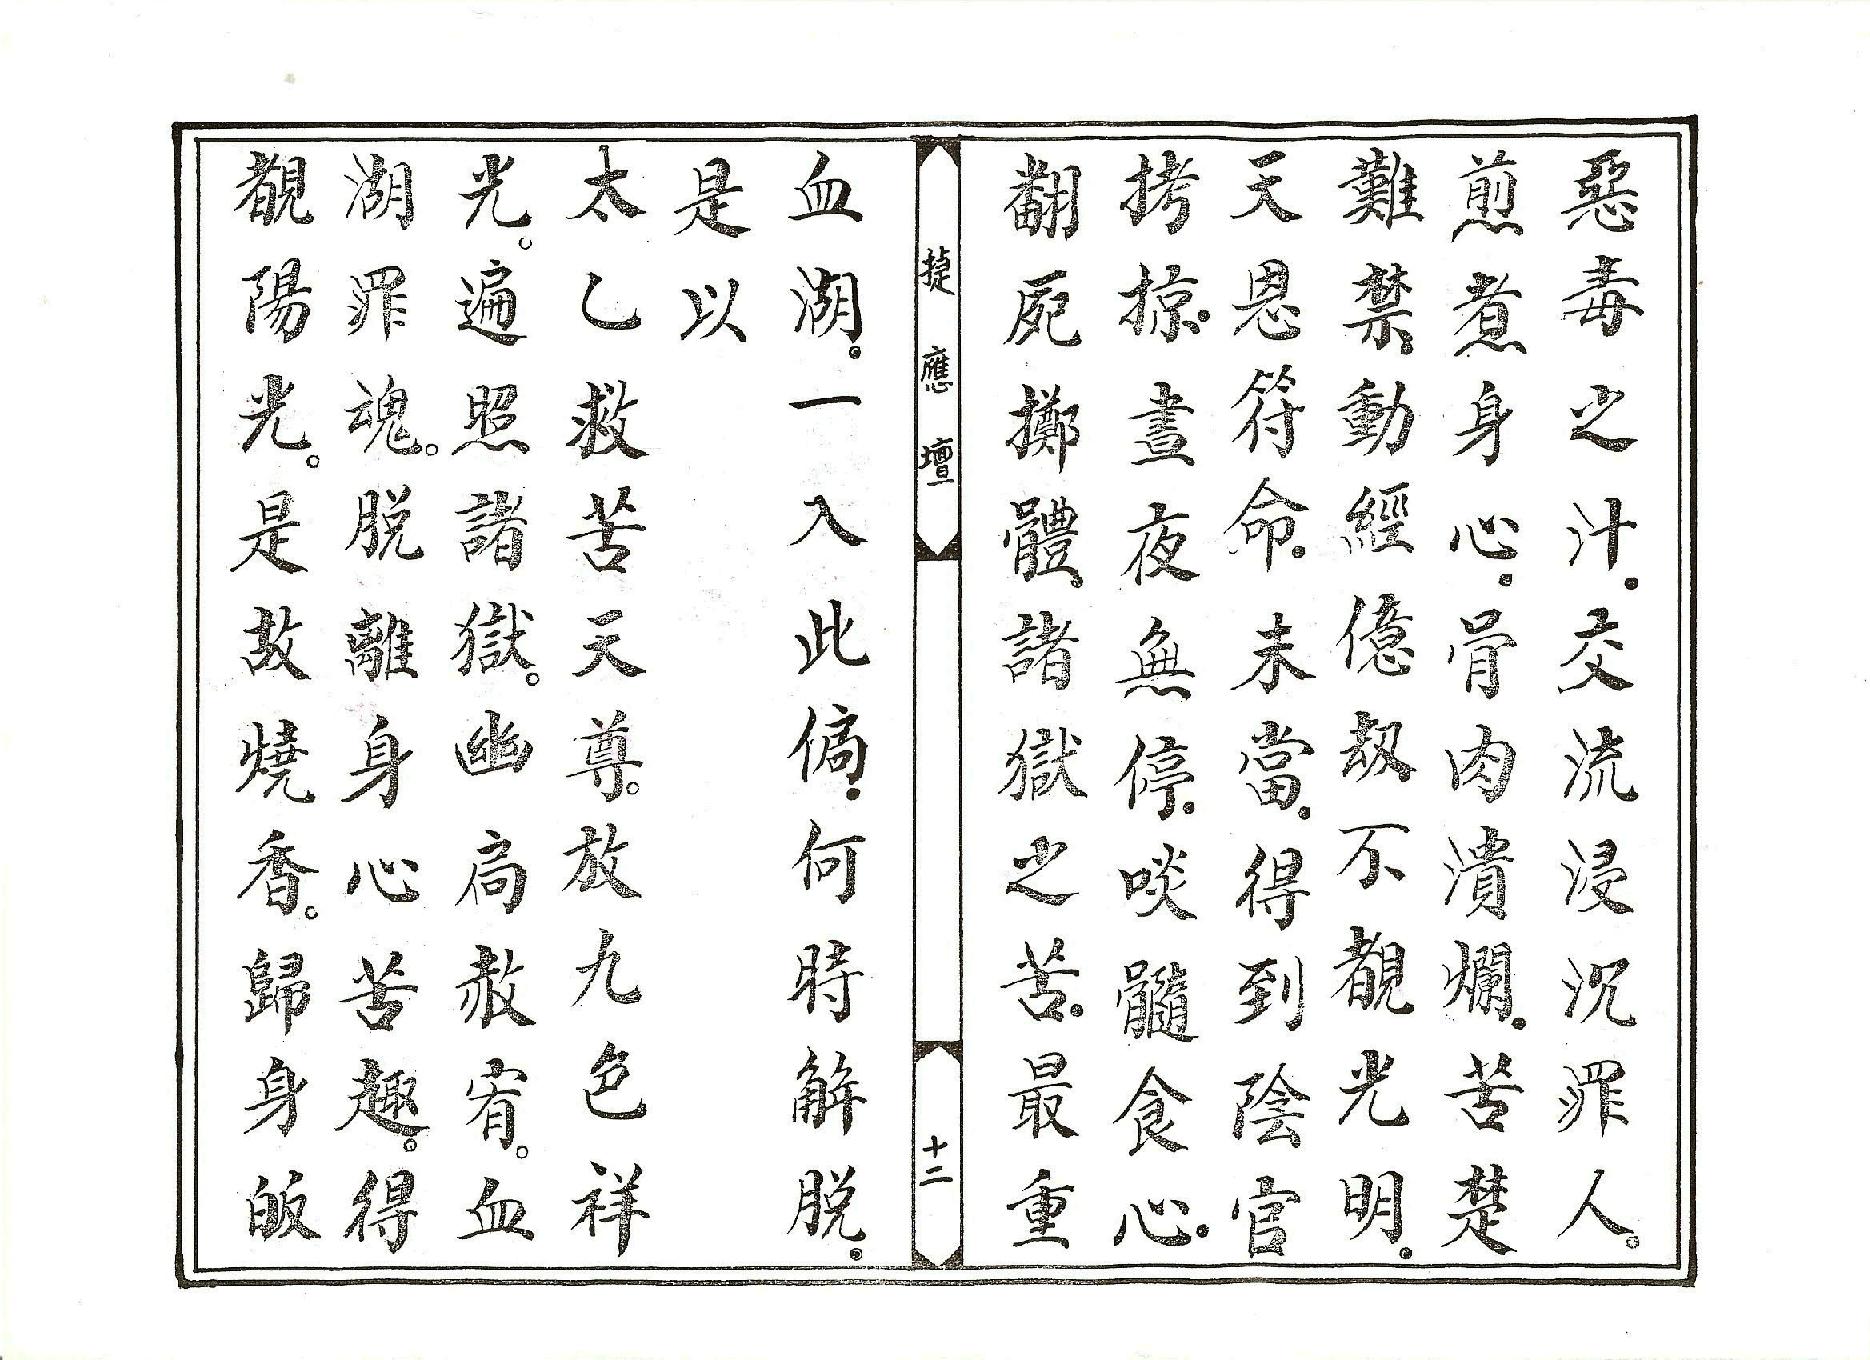 惡毒之汁.交流浸沉罪人。
煎煮身心.骨肉潰爛.苦楚
難禁.動經億劫不覩光明.
天恩符命.未當.得到陰官
拷掠.晝夜無停.啖髓食心.
翻屍擲體.諸獄之苦.最重
捷應壇
十二
血湖.一入此.何時解脫.
是以
太乙救苦天尊。放九色祥
光。遍照諸獄。幽扃赦宥。血
湖罪魂。脱離身心苦趣。得
覩陽光。是故燒香。歸身皈